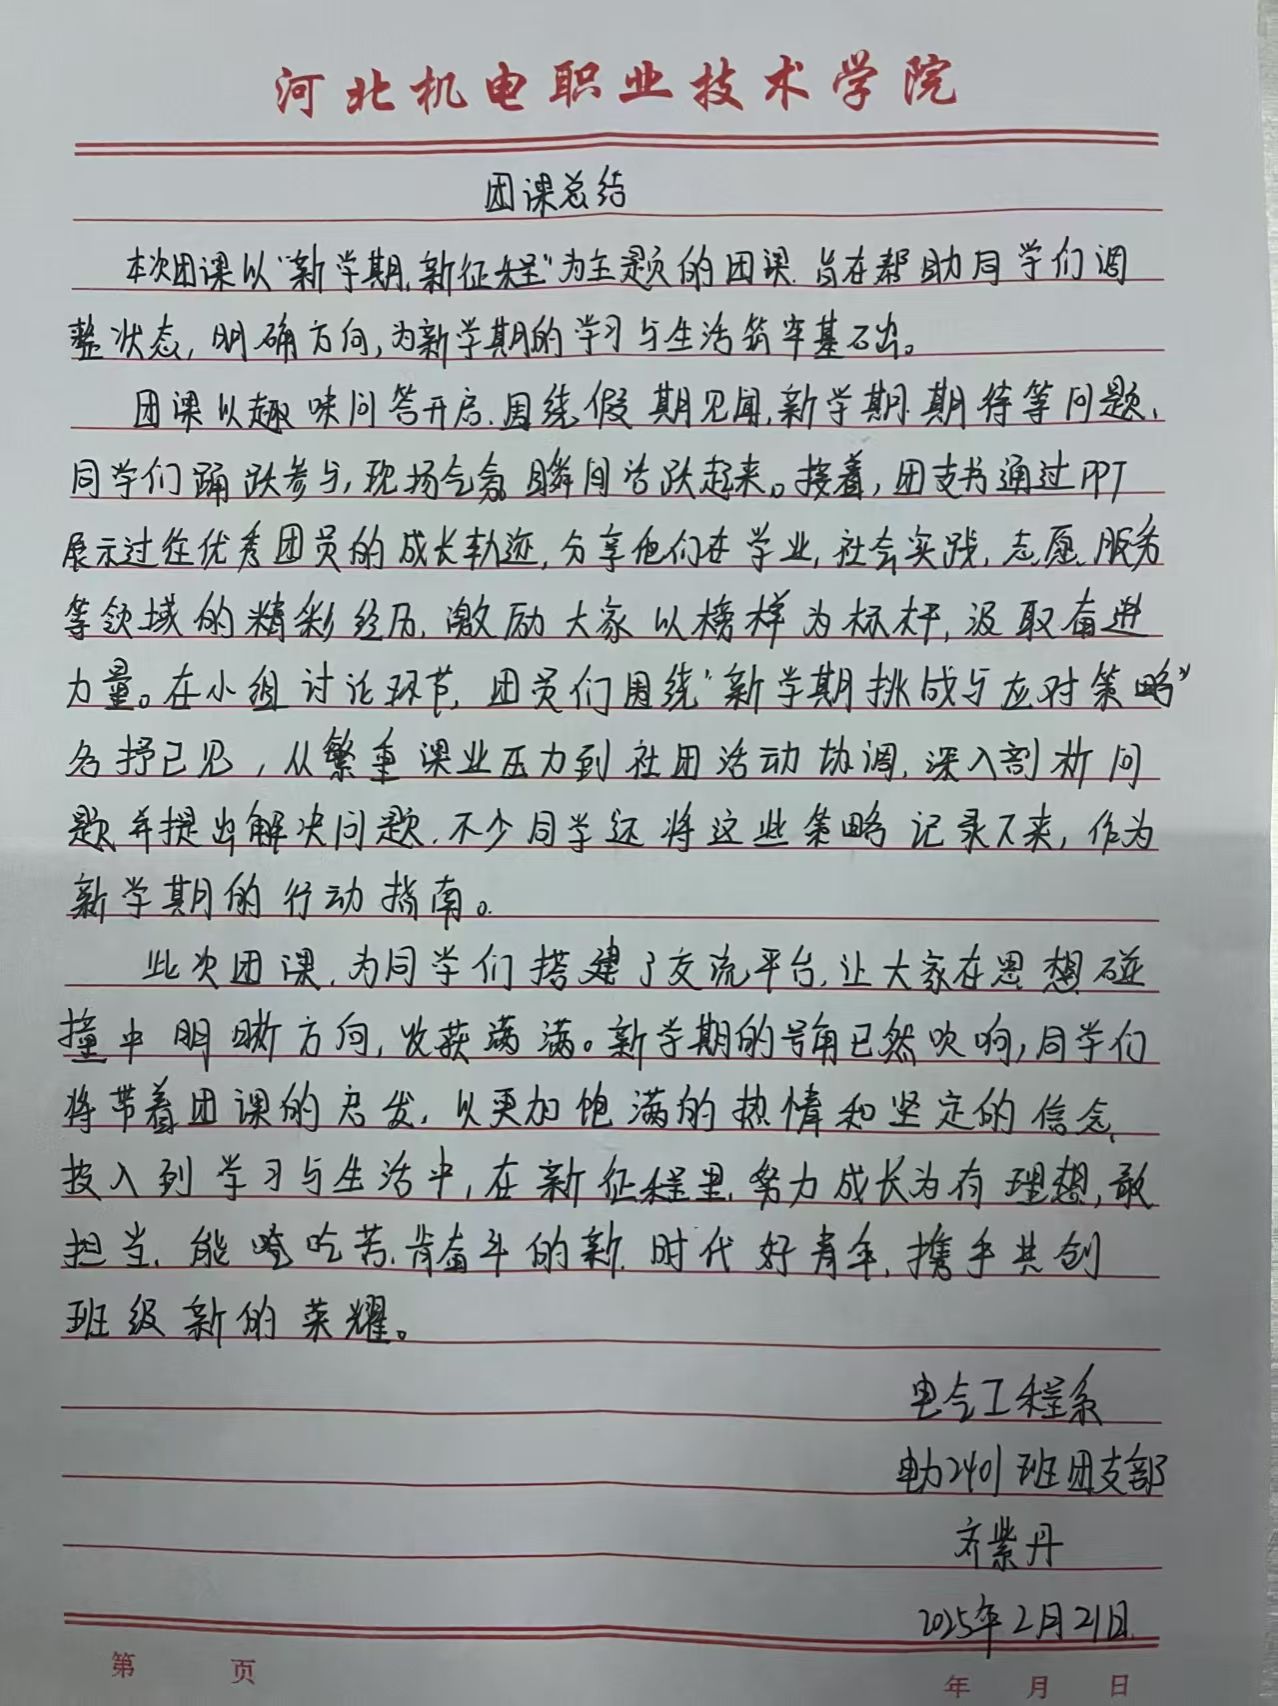 河北机电职业技术学院
团课总结
本次团课以“新学期,新征程”为主题的团课.旨在帮助同学们调
整状态,明确方向,为新学期的学习与生活筑牢基石出。
团课以趣味问答开启.围绕假期见闻,新学期期待等问题,
同学们踊跃参与,现场气氛瞬间活跃起来。接着,团支书通过PPT
展示过往优秀团员的成长轨迹,分享他们在学业,社会实践,志愿服务
等领域的精彩经历,激励大家以榜样为标杆,汲取奋进
力量。在小组讨论环节,团员们围绕“新学期挑战与应对策略”
各抒己见,从繁重课业压力到社团活动协调,深入剖析问
题并提出解决问题.不少同学还将这些策略记录下来,作为
新学期的行动指南。
此次团课,为同学们搭建了交流平台,让大家在思想碰
撞中明晰方向,收获满满。新学期的号角已然吹响,同学们
将带着团课的启发,以更加饱满的热情和坚定的信念,
投入到学习与生活中,在新征程里,努力成长为有理想,敢
担当,能吃苦,肯奋斗的新时代好青年,携手共创
班级新的荣耀。
电气工程系
电力2401班团支部
齐紫丹
2025年2月21日
第 页 年 月 日